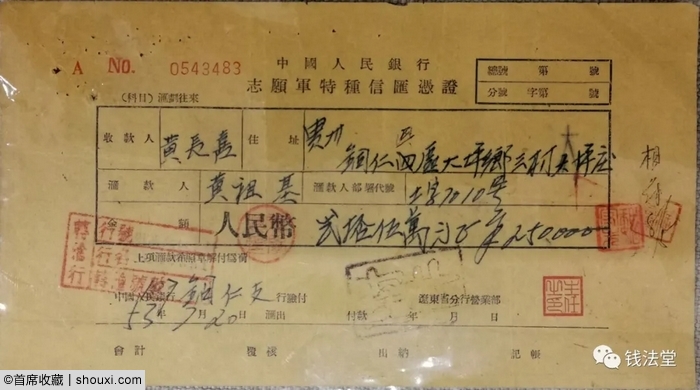 中國人民銀行
A No. 0543483
志願軍特種信匯憑證
總號 第 號
分號 字第 號
(科目)匯劃往來
收款人 黃長喜 住址 貴州
銅仁四區大坪鄉三村大坪庄
匯款人 黃祖基 匯款人部隊代號 7010號
金額 人民幣 弍拾伍萬 ¥250,000
上項匯款祈照章解付為荷
中國人民銀行 銅仁支行驗付
遼東省分行營業部
53年7月20日匯出 付款 年 月 日
會計 複核 出納 記帳
钱法堂
@首席收藏 | shouxi.com